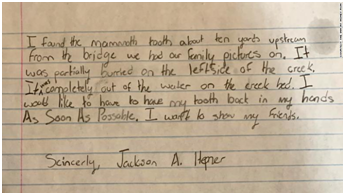 I found the mammoth tooth about ten yards upstream
from the bridge we had our family pictures on. It
was partially burried on the leftside of the creek.
It was completely out of the water on the creek bed. I
would like to have to have my tooth back in my hands
As Soon As Possable. I want to show my friends.
Scincerly, Jackson A. Hepner